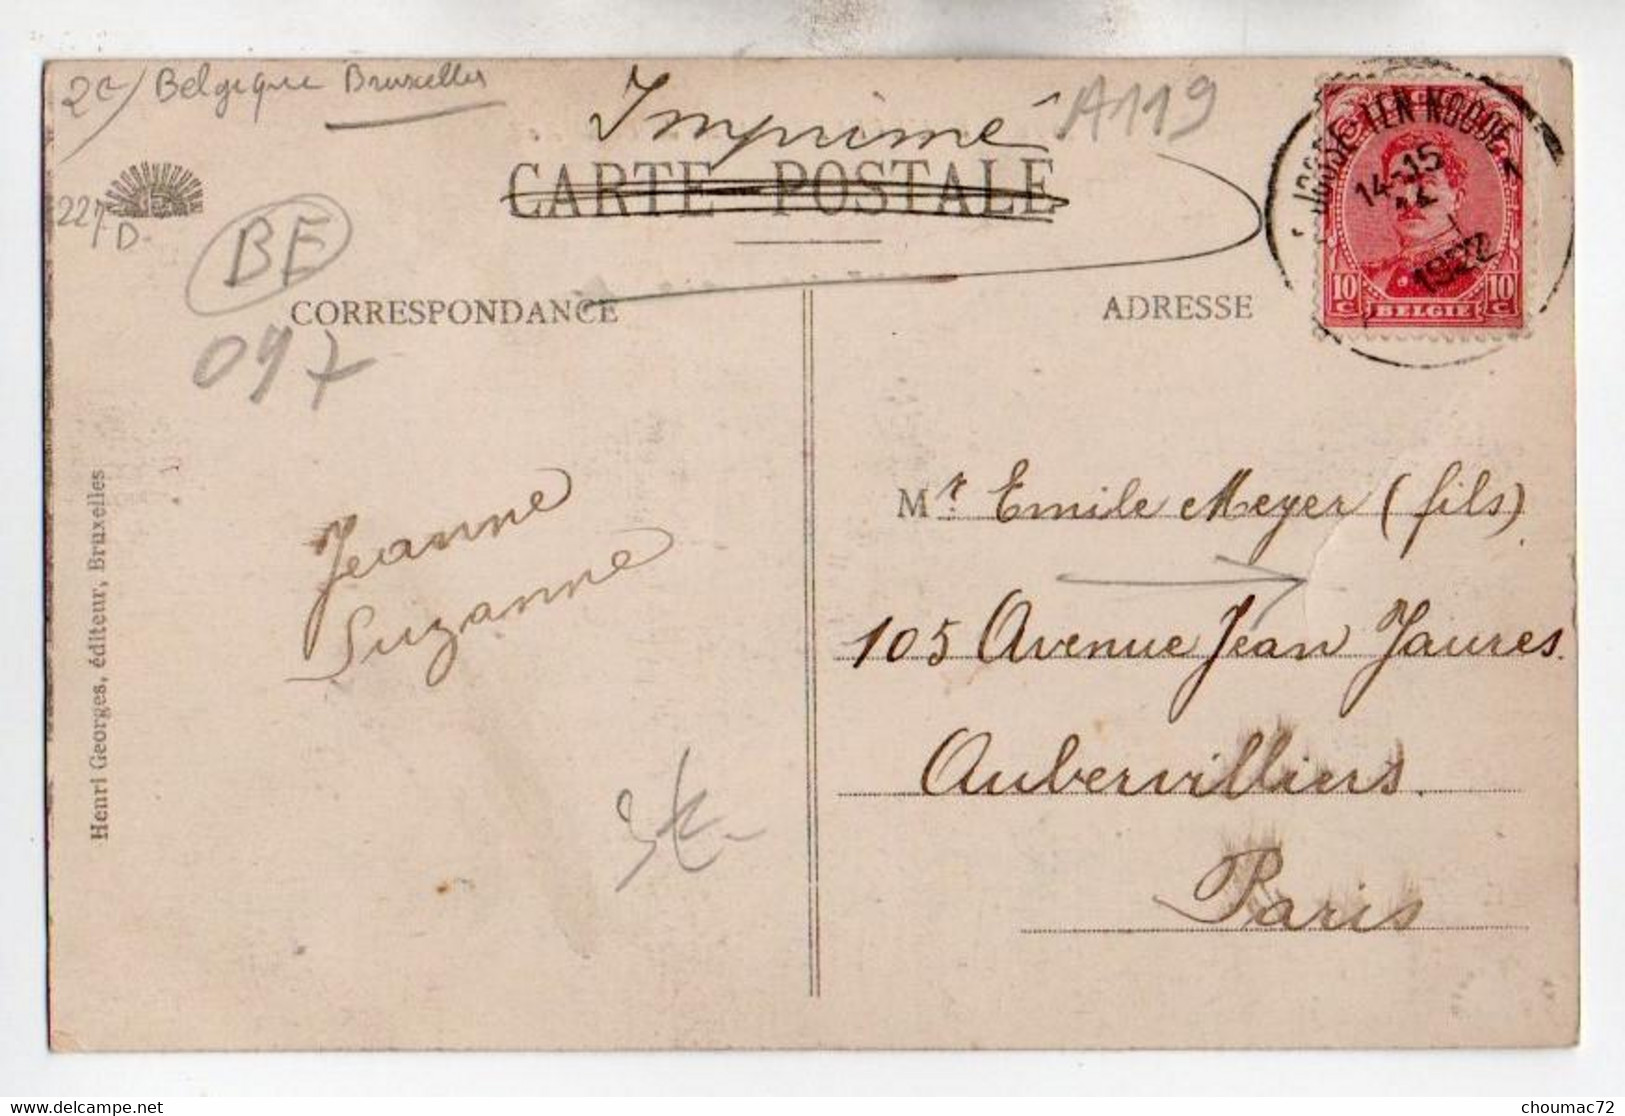 2e/ Belgique Bruxelles
Imprimé
A119
CARTE POSTALE
227
D.
BE
097
CORRESPONDANCE
ADRESSE
JOSSE-TEN-NOODE
14-15
1922
10 C BELGIE 10 C
Henri Georges, éditeur, Bruxelles
Jeanne
Suzanne
Mr. Emile Meyer (fils)
105 Avenue Jean Jaures.
Aubervilliers.
Paris
choumac72